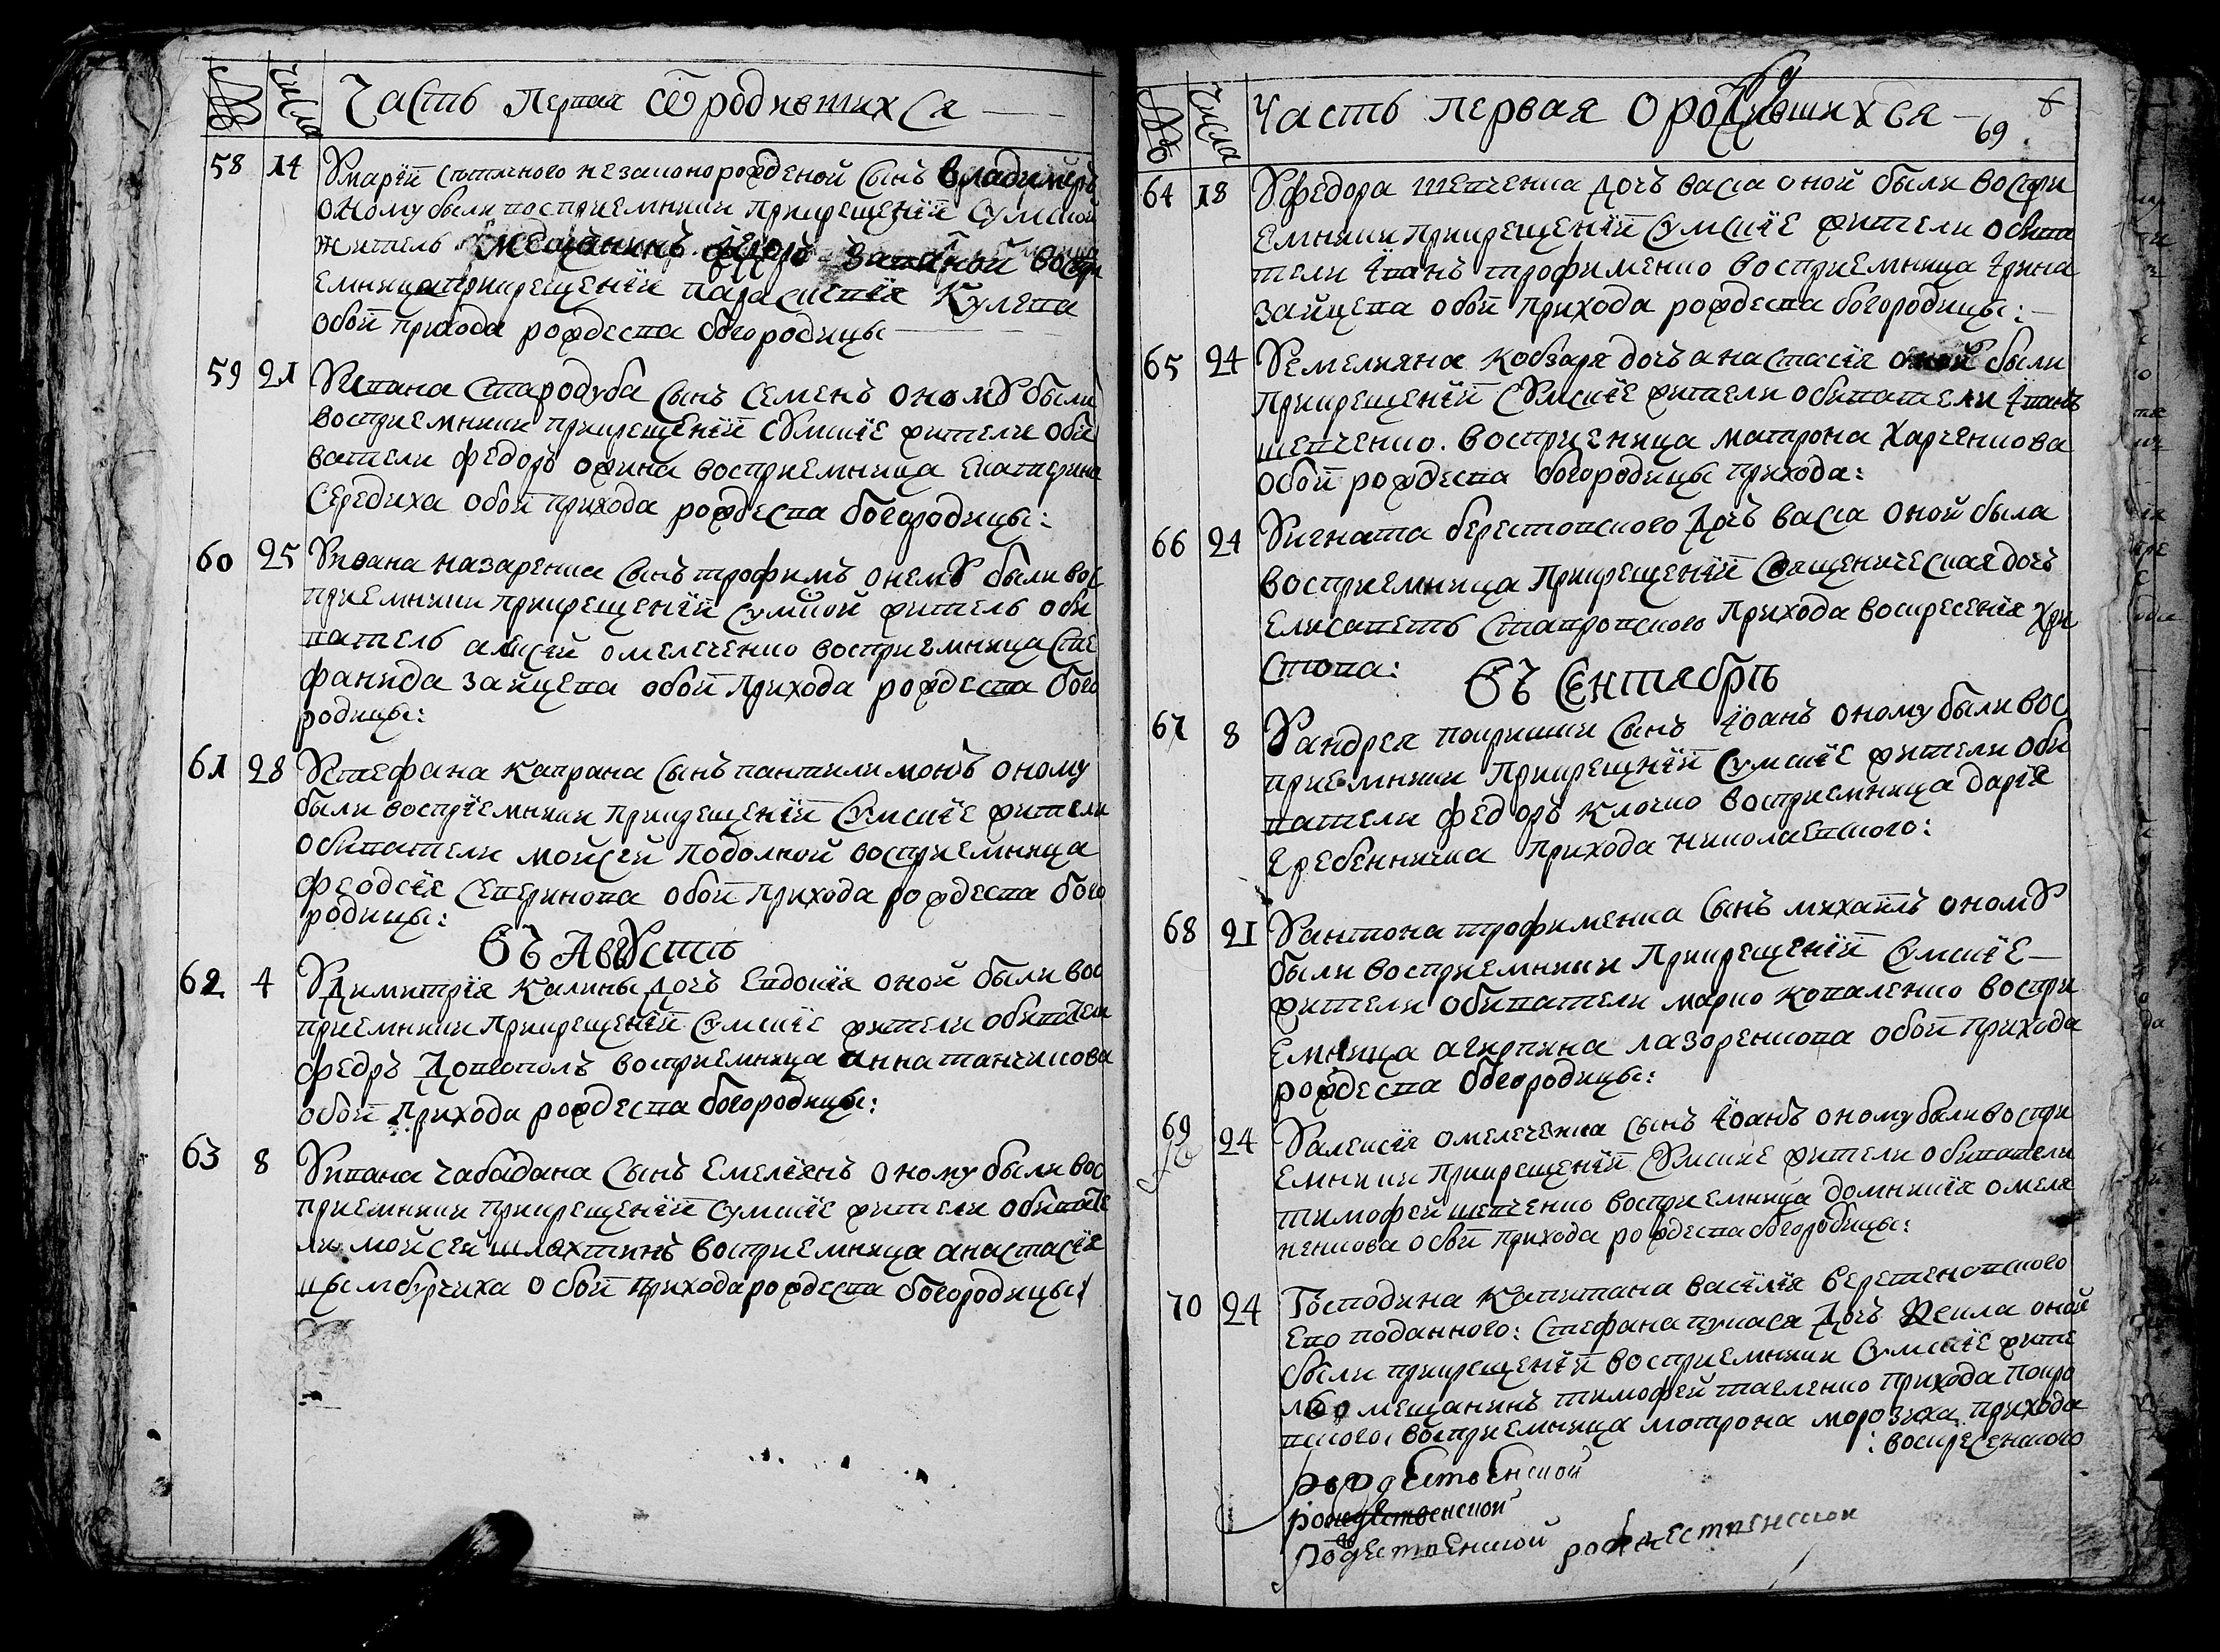 № числа Часть первая о родившихся
58 14 Умарїи незаконорожденой сынъ Владимиръ
оному были восприемники прикрещенїи сумской
житель мещанинъ воспри
емница прикрещенїи параскевїя Кулева
обои прихода рождества богородицы
59 21 Уивана Стародуба сынъ Семенъ ономꙋ были
восприемники прикрещенїи сꙋмскїе жители оби
ватели федоръ восприемница екатерина
Середиха обои прихода рождества богородицы:
60 25 Уивана назаренка сынъ трофимъ онемꙋ были вос
приемники прикрещенїи сумской житель оби
ватель алексїй омелеченко восприемница сте
фанида зайцева обои прихода рождества бого
родицы:
61 28 Устефана капрана сынъ пантилимонъ оному
были воспрїемники прикрещенїи сумскїе жители
обиватели мойсей подолной восприемница
феодсїя северинова обои прихода рождества бого
родицы:
въ Авгꙋстѣ
62 4 Удимитрїя калины дочъ евдокїя оной были вос
приемники прикрещенїи сумскїе жители обиватели
федръ восприемница анна танчикова
обои прихода рождества богородицы:
63 8 Уивана чабадана сынъ емелїянъ оному были вос
приемники прикрещенїи сумскїе жители обивате
ли мойсей шляхтинъ восприемница анастасїя
цымбурчиха обои прихода рождества богородицы
№ числа Часть первая о родившихся 69
64 18 Уфедора шевченка дочъ васса оной были воспри
емники прикрещенїи сумскїе жители обива
тели їванъ трофименко восприемница їрина
зайцева обои прихода рождества богородицы:
65 24 Уемелияна кобзаря дочъ анастасїя оной были
прикрещенїи сꙋмскїе жители обиватели їванъ
шевченко. восприеница матрона харченкова
обои рождества богородицы прихода:
66 24 Уигната берестовского дочъ васса оной была
восприемница прикрещенїи священическая дочъ
елисаветъ ставровского прихода воскресенїя хри
стова:
въ Сентябрѣ
67 8 Уандрея покришки сынъ їоанъ оному были вос
приемники прикрещнїи сумскїе жители оби
ватели федоръ клочко восприемница дарїя
гребенничка прихода николаевского:
68 21 Уантона трофименка сынъ михаилъ ономꙋ
были восприемники прикрещенїи сумскїе
жители обиватели марко коваленко воспри
емница агирпина лазоренкова обои прихода
рождества богородицы:
69 24 Уалексїя омелеченка сынъ їоанъ оному были воспри
емники прикрещенїи сꙋмские жители обиватели
тимофей шевченко восприемница домникїя омеля
ненкова обои прихода рождества богородицы:
70 24 Господина капитана василїя веретеновского
ево поданного: стефана дочъ оной
были прикрещенїи восприемники сумскїе жите
мещанинъ тимофей павленко прихода покро
вского, восприемница мотрона морозиха прихода
: воскресенского
рождественской
рождественской
рождественской рождественской